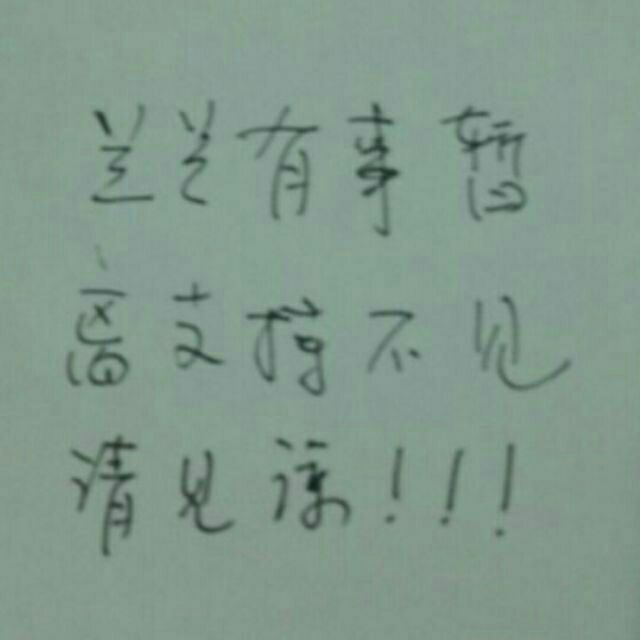 兰兰有事暂
离文楼不见
请见谅!!!